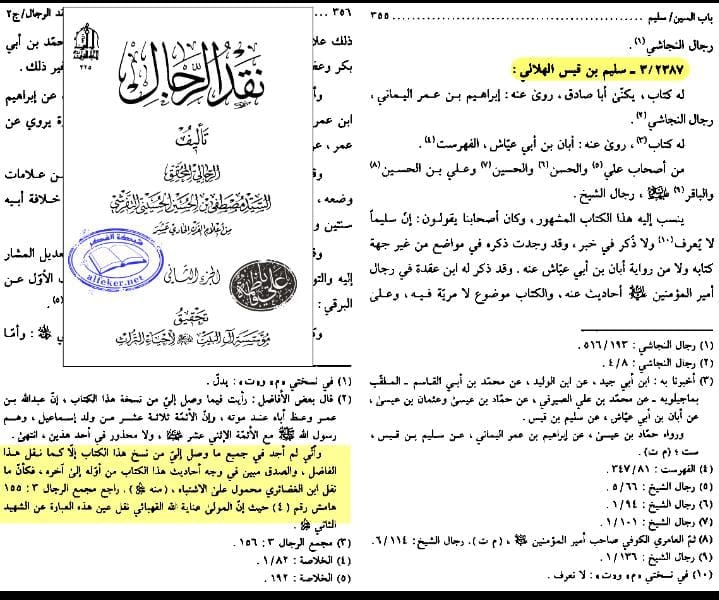 باب السين/ سليم ..................................... ٣٥٥
رجال النجاشي (١) .
٣/٢٣٨٧ ـ سليم بن قيس الهلالي :
له كتاب ، يكنّى أبا صادق ، روى عنه : إبراهيم بن عمر اليماني ،
رجال النجاشي (٢) .
له كتاب (٣) ، روى عنه : أبان بن أبي عيّاش ، الفهرست (٤) .
من أصحاب علي (٥) والحسن (٦) والحسين (٧) وعلي بن الحسين (٨)
والباقر (٩) ﷺ ، رجال الشيخ .
ينسب إليه هذا الكتاب المشهور ، وكان أصحابنا يقولون : إنّ سليماً
لا يُعرف (١٠) ولا ذُكر في خبر ، وقد وجدت ذكره في مواضع من غير جهة
كتابه ولا من رواية أبان بن أبي عيّاش عنه . وقد ذكر له ابن عقدة في رجال
أمير المؤمنين ﷺ أحاديث عنه ، والكتاب موضوع لا مريّة فيه ، وعلى
(١) رجال النجاشي : ٥١٦/١٩٣ .
(٢) رجال النجاشي : ٤/٨ .
(٣) أخبرنا به : ابن أبي جيد ، عن ابن الوليد ، عن محمّد بن أبي القاسم ـ الملقّب
بماجيلويه ـ عن محمّد بن علي الصيرفي ، عن حمّاد بن عيسى وعثمان بن عيسى ،
عن أبان بن أبي عيّاش ، عن سليم بن قيس .
ورواه حمّاد بن عيسى ، عن إبراهيم بن عمر اليماني ، عن سليم بن قيس ،
ست ؛ (م ت) .
(٤) الفهرست : ٣٤٧/٨١ .
(٥) رجال الشيخ : ٥/٦٦ .
(٦) رجال الشيخ : ١/٩٤ .
(٧) رجال الشيخ : ١/١٠١ .
(٨) ثمّ العامري الكوفي صاحب أمير المؤمنين ﷺ ، (م ت) . رجال الشيخ : ٦/١١٤ .
(٩) رجال الشيخ : ١/١٣٦ .
(١٠) في نسختي «م» و«ت» : لا نعرف .
٣٥٦ ... د الرجال/ج٢
ذلك علا
محمّد بن أبي
بكر وعظ
غير ذلك .
عن إبراهيم
ابن عمر
ة يروي عن
عمر ، عن
ن علامات
وضعه ،
خلافة أبيه
سنتين و
تعديل المشار
إليه والتو
الأوّل عن
البرقي :
(٥) .
ﷺ : وأمّا
٢٢٥
نقد الرجال
تأليف
الرجالي المحقق
السيد مصطفى بن الحسين الحسيني التفرشي
من أعلام القرن الحادي عشر
الجزء الثاني
تحقيق
مؤسسة آل البيت ﷺ لإحياء التراث
شبكة الفكر
alfeker.net
(١) في نسختي «م» و«ت» : يدلّ .
(٢) قال بعض الأفاضل : رأيت فيما وصل إليّ من نسخة هذا الكتاب ، إنّ عبدالله بن
عمر وعظ أباه عند موته ، وإنّ الأئمّة ثلاثة عشر من ولد إسماعيل ، وهم
رسول الله ﷺ مع الأئمّة الإثني عشر ﷺ ، ولا محذور في أحد هذين ، انتهى .
وأنّي لم أجد في جميع ما وصل إليّ من نسخ هذا الكتاب إلّا كما نقل هذا
الفاضل ، والصدق مبين في وجه أحاديث هذا الكتاب من أوّله إلى آخره ، فكأنّ ما
نقل ابن الغضائري محمول على الاشتباه ، (منه ﷺ) . راجع مجمع الرجال ٣ : ١٥٥
هامش رقم (٤) حيث إنّ المولى عناية الله القهبائي نقل عين هذه العبارة عن الشهيد
الثاني ﷺ .
(٣) مجمع الرجال ٣ : ١٥٦ .
(٤) الخلاصة : ١/٨٢ .
(٥) الخلاصة : ١٩٢ .